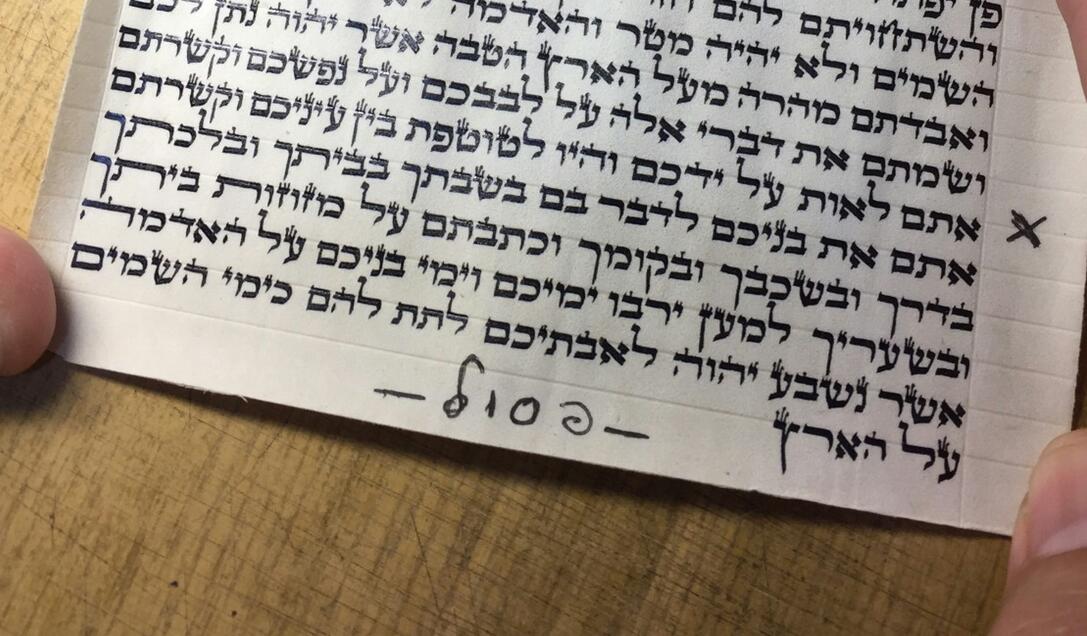 פן
והשתחויתם להם
השמים ולא יהיה מטר והאדמה לא
ואבדתם מהרה מעל הארץ הטבה אשר יהוה נתן לכם
ושמתם את דברי אלה על לבבכם ועל נפשכם וקשרתם
אתם לאות על ידכם והיו לטוטפת בין עיניכם וקשרתם
X
אתם את בניכם לדבר בם בשבתך בביתך ובלכתך
בדרך ובשכבך ובקומך וכתבתם על מזוזות ביתך
ובשעריך למען ירבו ימיכם וימי בניכם על האדמה
אשר נשבע יהוה לאבתיכם לתת להם כימי השמים
על הארץ
—פסול—